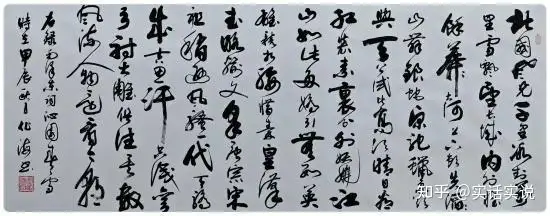 北国风光千里冰封万
里雪飘望长城内外惟
余莽莽大河上下顿失滔滔
山舞银蛇原驰蜡象欲
與天公试比高须晴日看
红装素裹分外妖娆江
山如此多娇引无数英
雄竞折腰惜秦皇漢
武略输文采唐宗宋
祖稍逊风骚一代天骄
成吉思汗只识弯
弓射大雕俱往矣数
风流人物还看今朝
右录毛泽东词沁园春雪
时在甲辰秋月
知乎 @实话实说